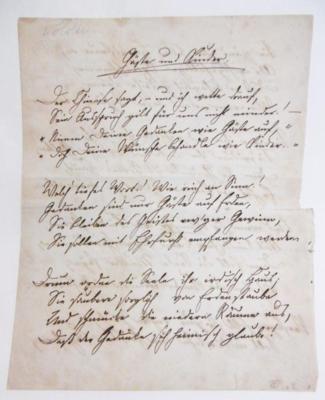 Gäste und Kinder.
Der Chinese sagt, – und ich wette drauf,
Sein Ausspruch gilt für uns nicht minder! –
"Nimm Deine Gedanken wie Gäste auf,"
"Doch Deine Wünsche behandle wie Kinder."
Welch liebes Wort! Wie reich an Sinn!
Gedanken sind nur Gäste auf Erden,
Sie bleiben des Geistes ew'ger Gewinn,
Sie sollen mit Ehrfurcht empfangen werden
Drum ordne die Seele ihr irdisch Haus,
Sie säubere sorglich von Erdenstaube
Und schmücke die niedern Räume aus,
Daß der Gedanke sich heimisch glaube!